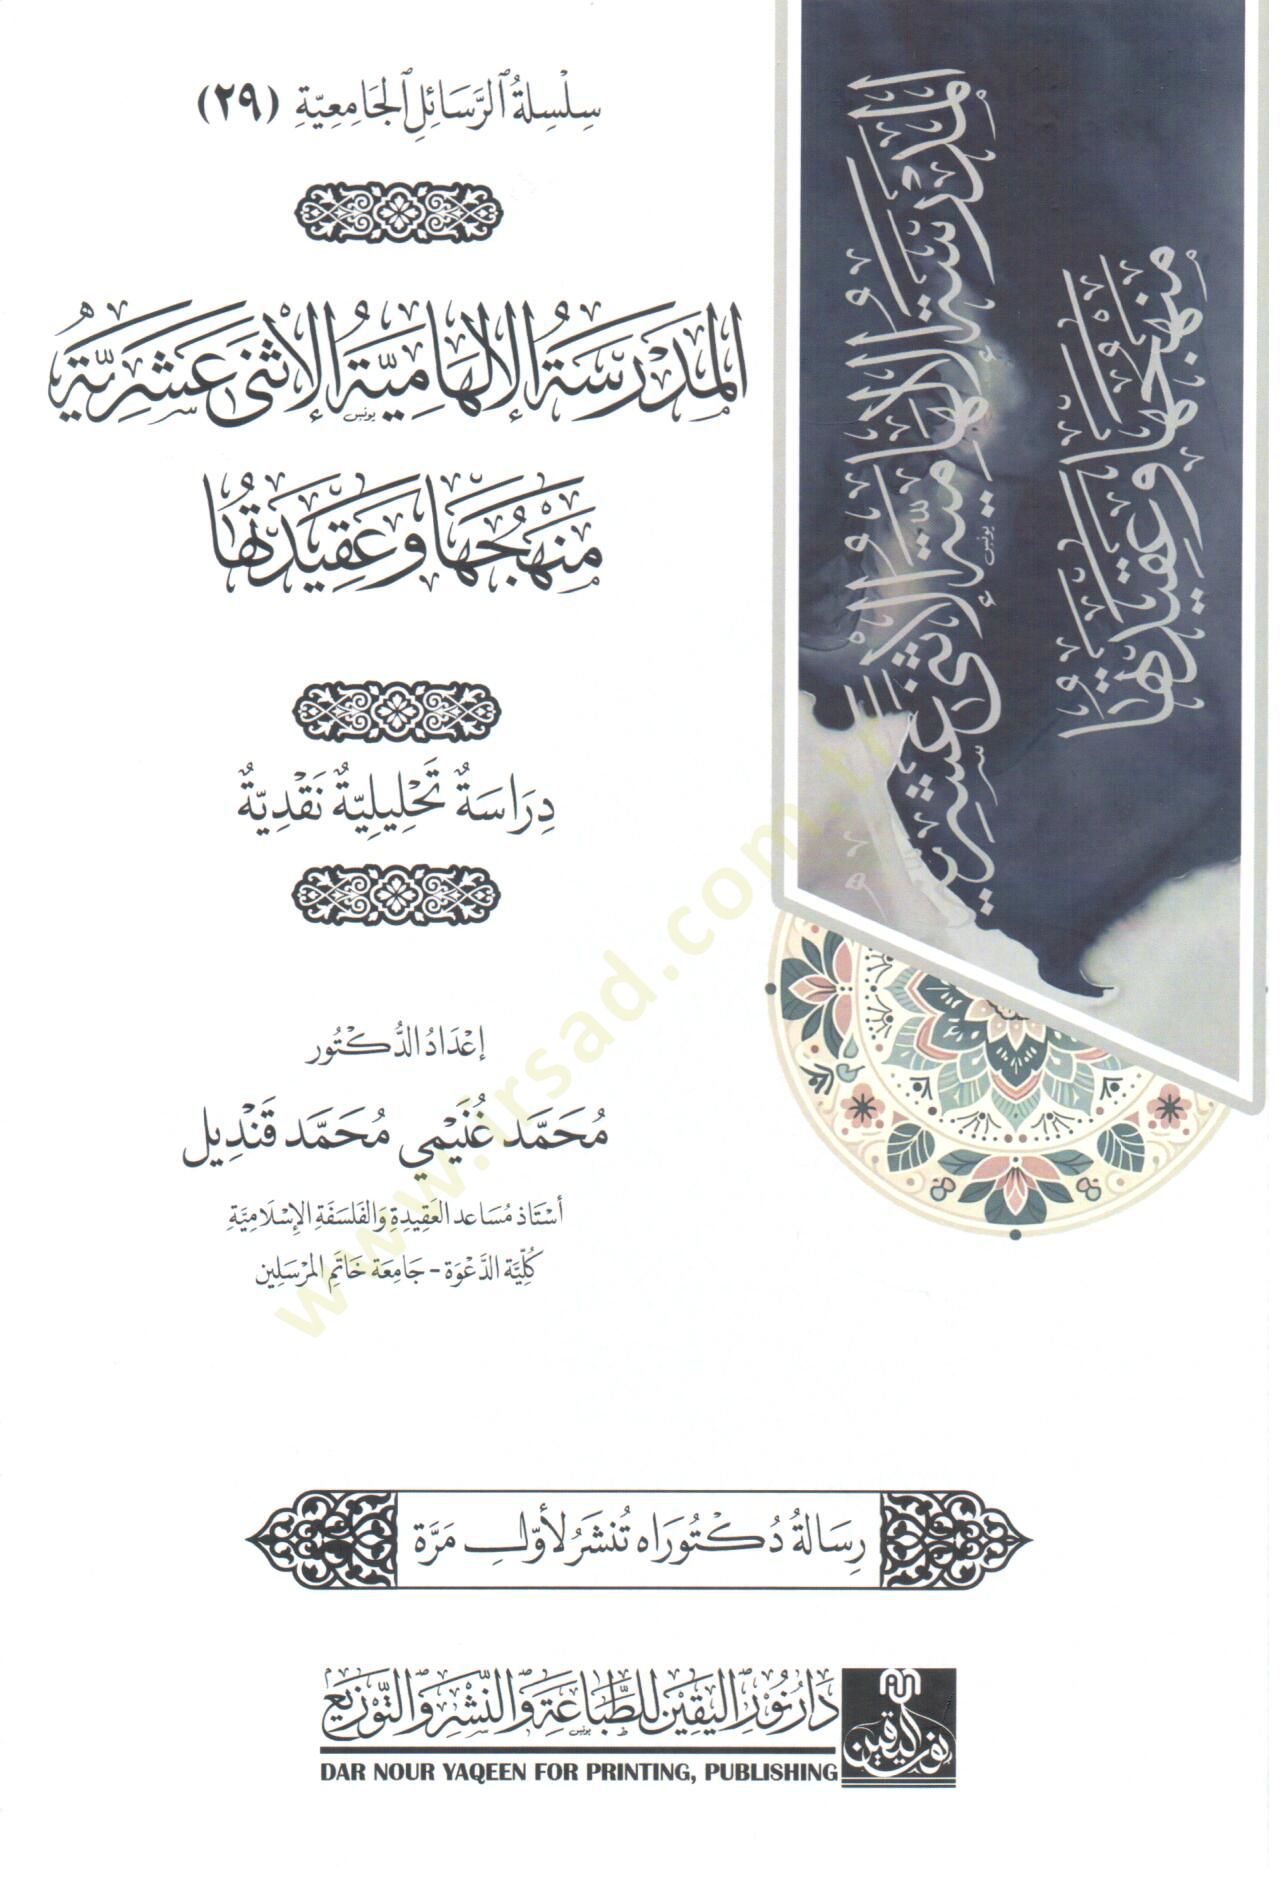 سِلْسِلَةُ الرَّسَائِلِ الْجَامِعِيَّةِ (٢٩)
المَدْرَسَةُ الإلهَامِيَّةُ الإثْنَى عَشَرِيَّةُ
مَنْهَجُهَا وَعَقِيدَتُهَا
دِرَاسَةٌ تَحْلِيلِيَّةٌ نَقْدِيَّةٌ
إعْدَادُ الدُّكْتُور
مُحَمَّد غُنَيْمِي مُحَمَّد قَنْدِيل
أسْتَاذ مُسَاعد العَقِيدِةِ وَالفَلسَفَةِ الإسْلَامِيَّةِ
كُلِّيَّة الدَّعْوَة - جَامِعَة خَاتَمِ المُرْسَلِين
المدرسة الإلهامية الإثنى عشرية
منهجها وعقيدتها
رِسَالةُ دُكْتُورَاه تُنشَرُ لأوّلِ مَرَّة
دَارُ نُورِ اليَقِينِ لِلطِّبَاعَةِ وَالنَّشْرِ وَالتَّوْزِيعِ
DAR NOUR YAQEEN FOR PRINTING, PUBLISHING
نور اليقين
www.irsad.com.tr